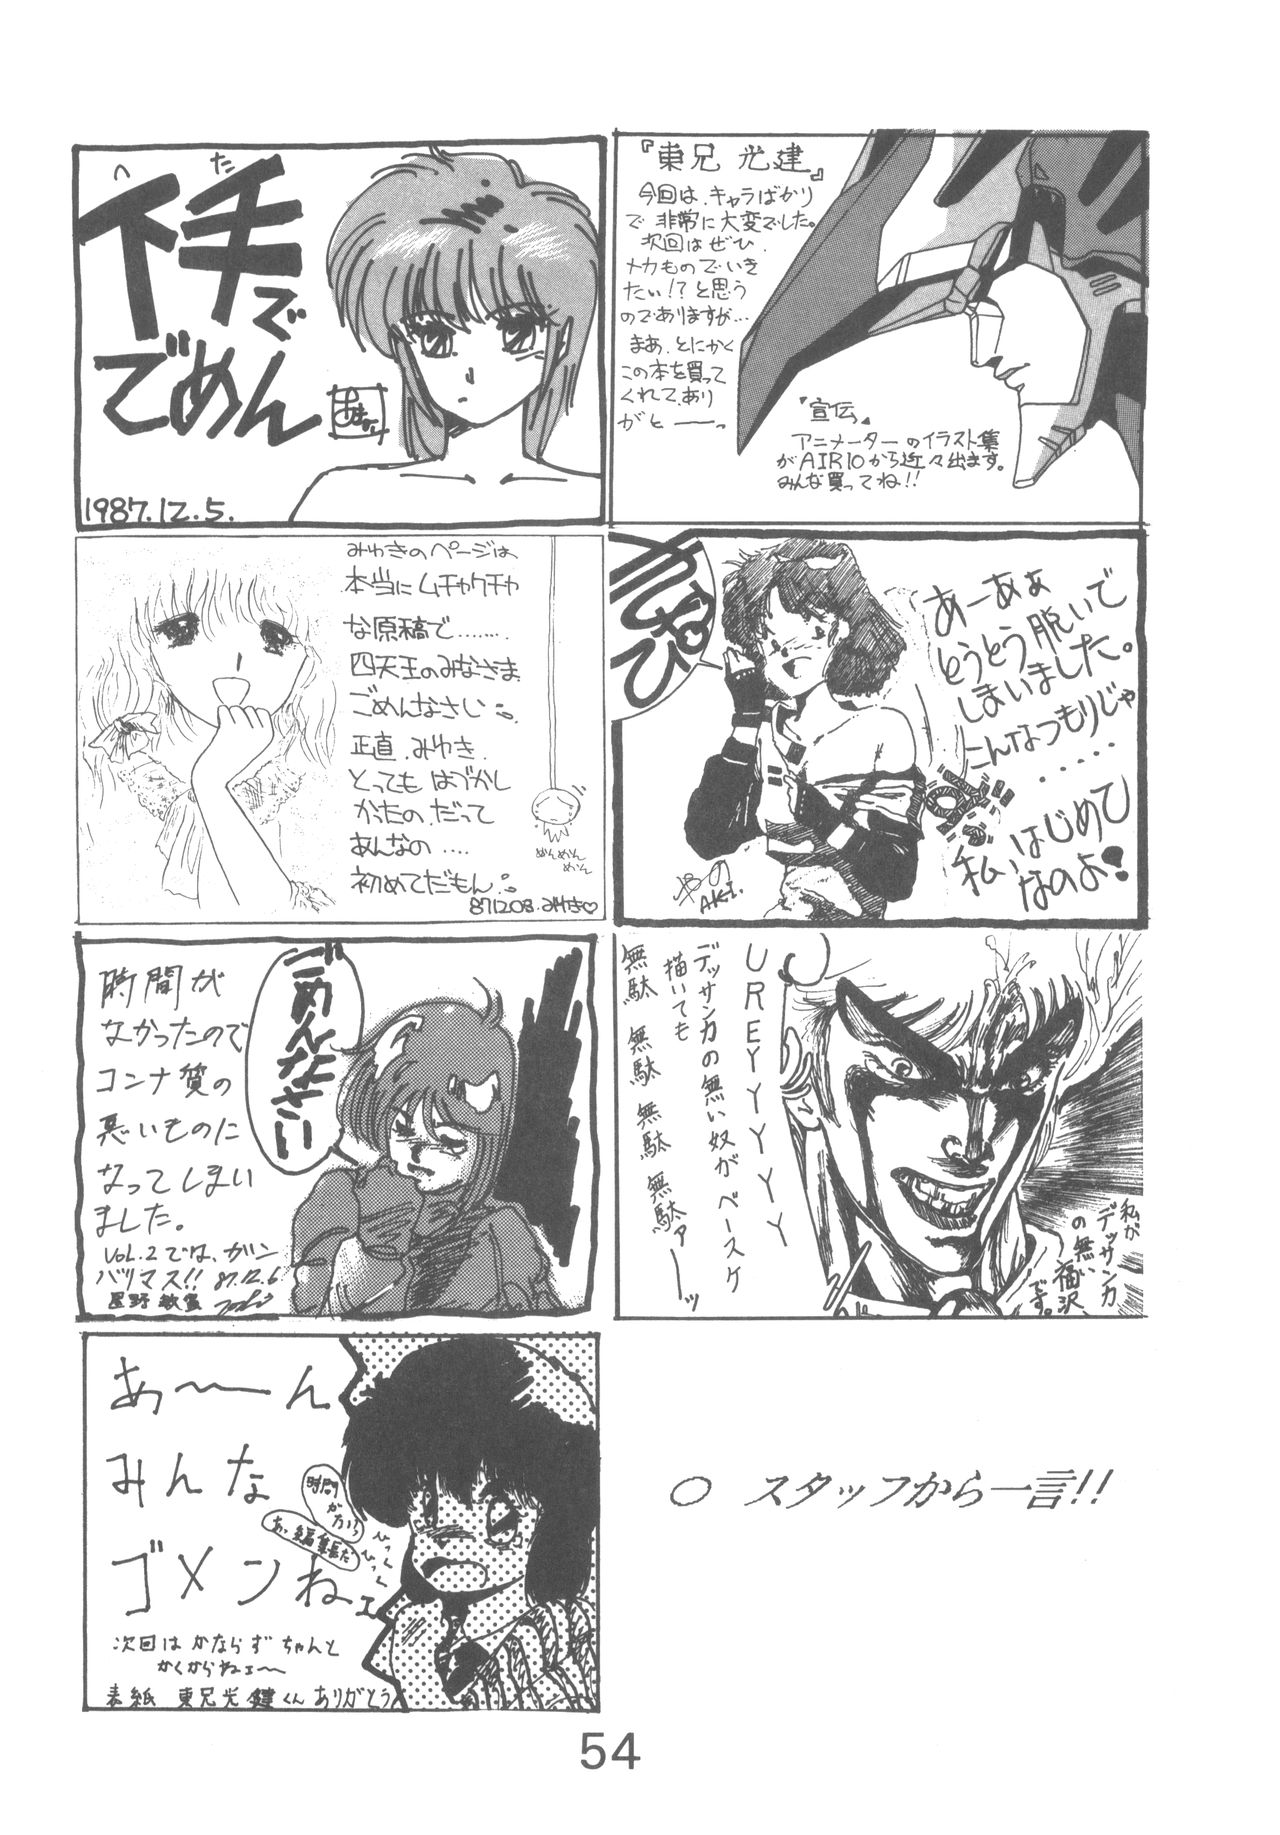 へ
た
イチで
ごめん
1987.12.5.
『東兄 光建』
今回は、キャラばかり
で 非常に大変でした。
次回はぜひ、
メカものでいき
たい!?と思う
のでありますが…
まあ、とにかく
この本を買って
くれて、あり
がと——っ
『宣伝』
アニメーターのイラスト集
がAIR10から近々出ます。
みんな買ってね!!
みゆきのページは
本当にムチャクチャ
な原稿で.......
四天王のみなさま
ごめんなさい
正直、みゆき、
とっても はづかし
かたの、だって
あんなの....
初めてだもん
めんめんめん
871208.みゆき♡
あーあぁ
とうとう脱いで
しまいました。
こんなつもりじゃ
.....
私、はじめて
なのよ!
AKI.
時間が
なかったので
コンナ質の
悪いものに
なってしまい
ました。
VOL.2では、ガンバリマス!! 87.12.6
ごめんなさい
UREYYYYYY
デッサン力の無い奴がベースケ
描いても
無駄 無駄 無駄 無駄ァーーッ
私が
デッサン力
の無い
福沢
です。
あ〜〜ん
みんな
ゴメンねェ
時間
がないから
あ、編集長だ
びっく
びっく
次回は かならず ちゃんと
かくからねェ〜
表紙 東兄光鍵くん ありがとう
○ スタッフから一言!!
54